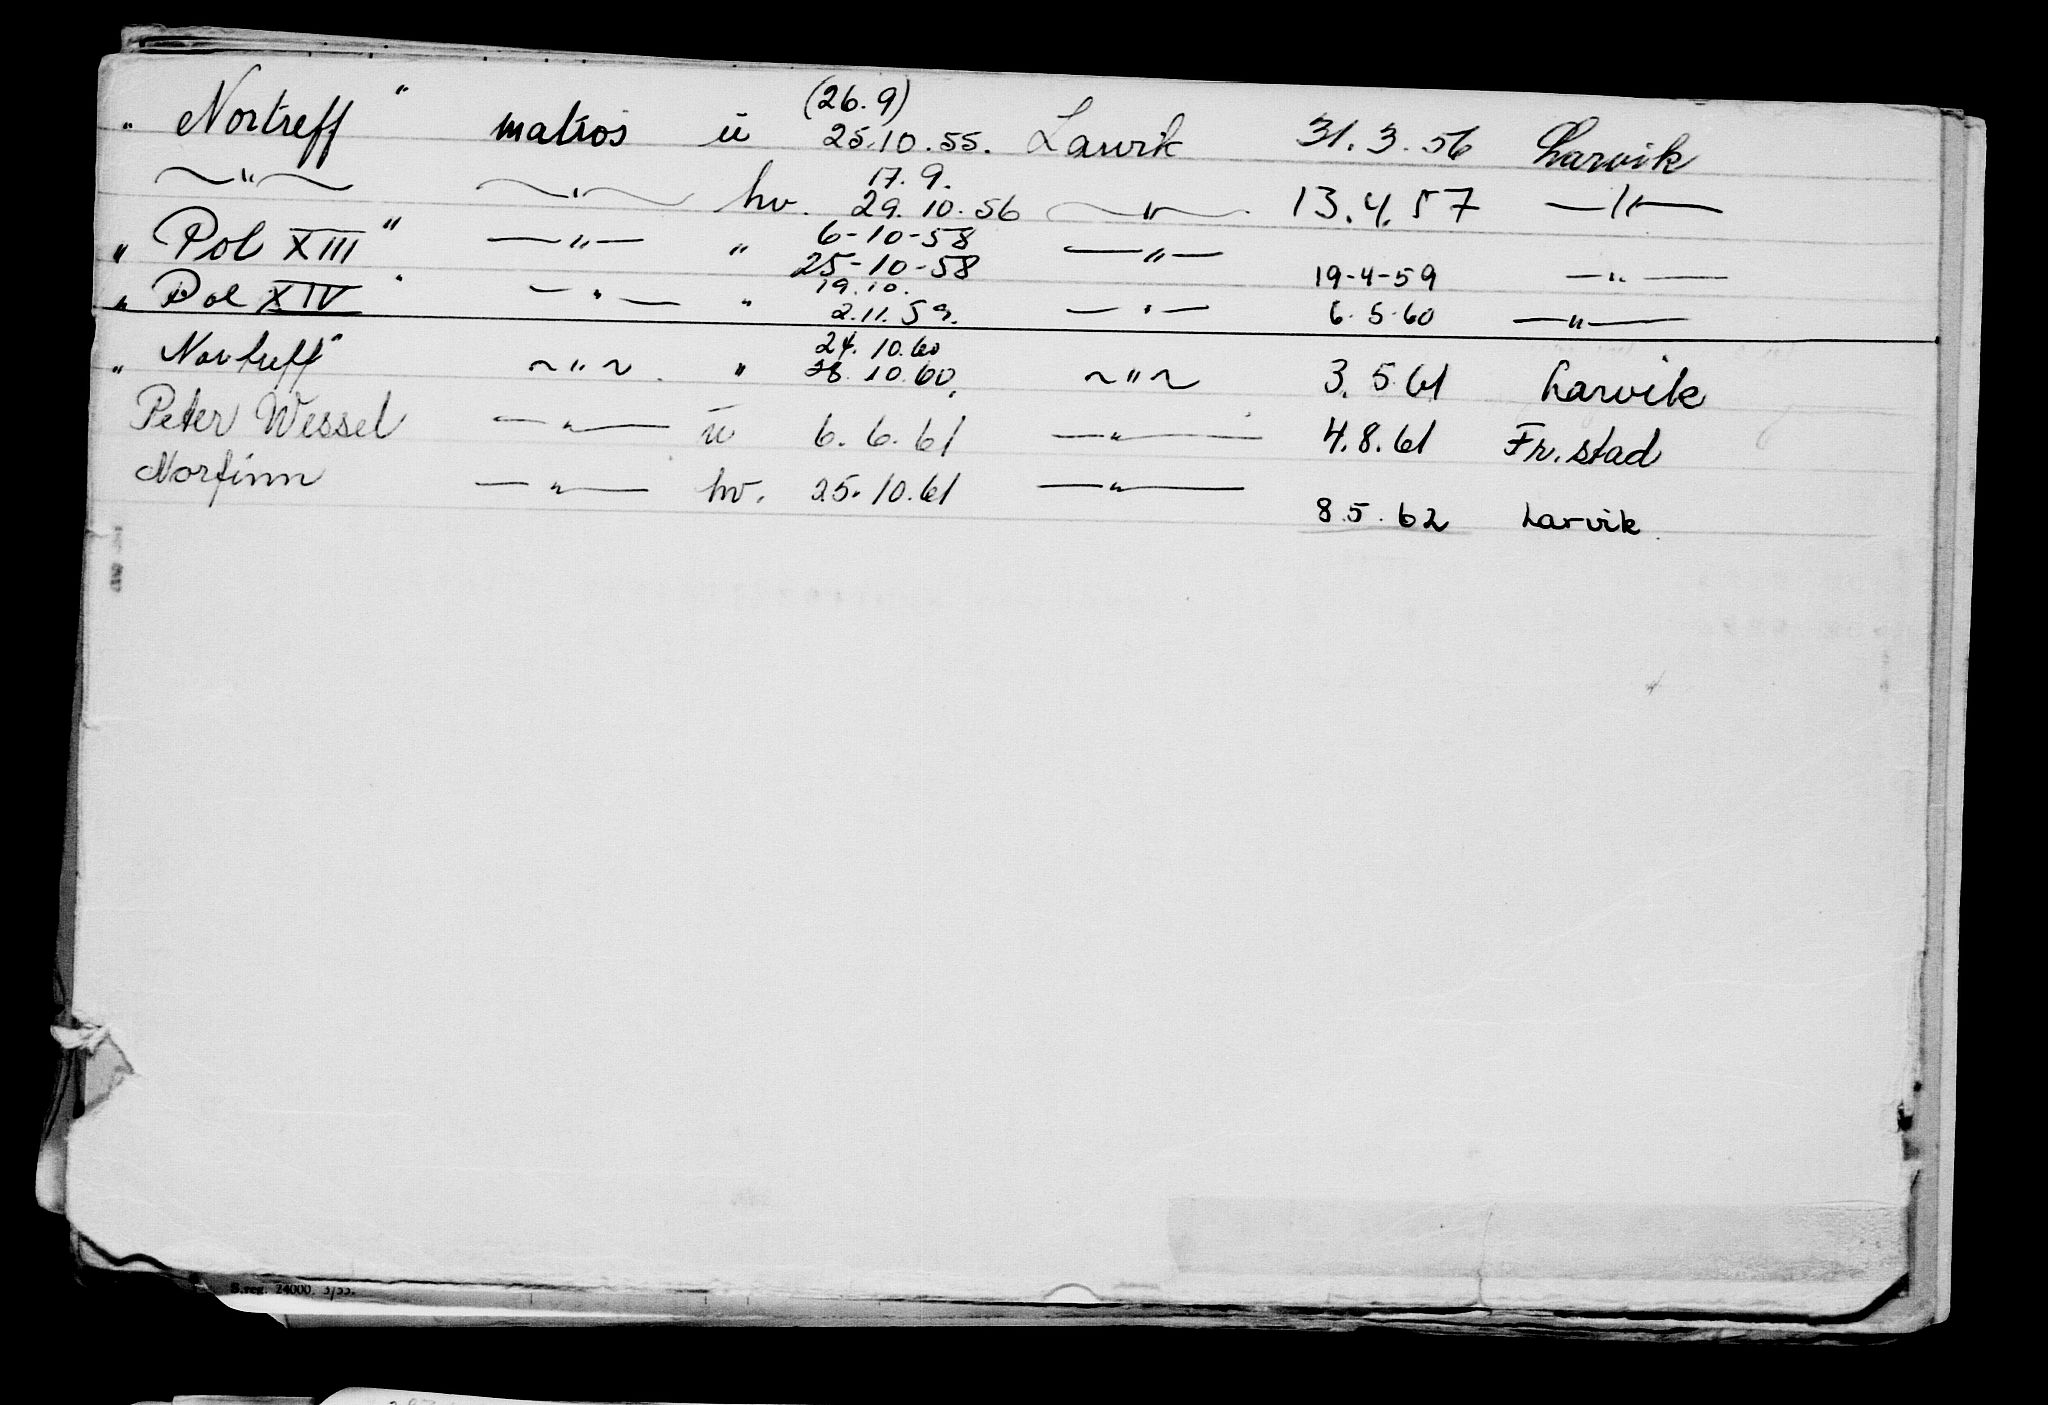 " Nortreff " matros u (26.9) 25.10.55. Larvik 31.3.56 Larvik
—"— —"— hv. 17.9. 29.10.56 —"— 13.4.57 —"—
" Pol XIII " —"— " 6-10-58 25-10-58 —"— 19-4-59 —"—
" Pol XIV " —"— " 19.10. 2.11.59. —"— 6.5.60 —"—
" Nortreff " ~"~ " 24.10.60 28.10.60. ~"~ 3.5.61 Larvik
Peter Wessel —"— u 6.6.61 —"— 4.8.61 Fr.stad
Norfinn —"— hv. 25.10.61 —"— 8.5.62 Larvik.
S.reg. 24000. 3/55.